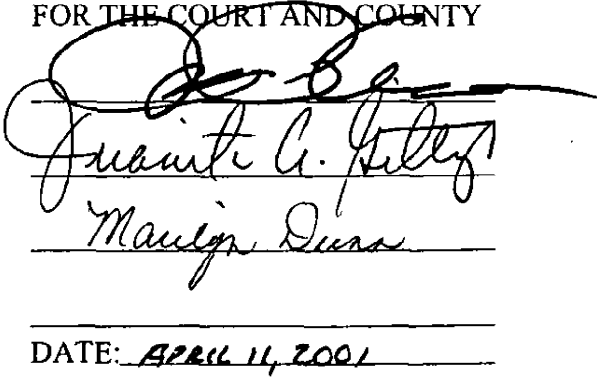 FOR THE COURT AND COUNTY
Juanita A.
Marilyn Dunn
DATE: APRIL 11, 2001